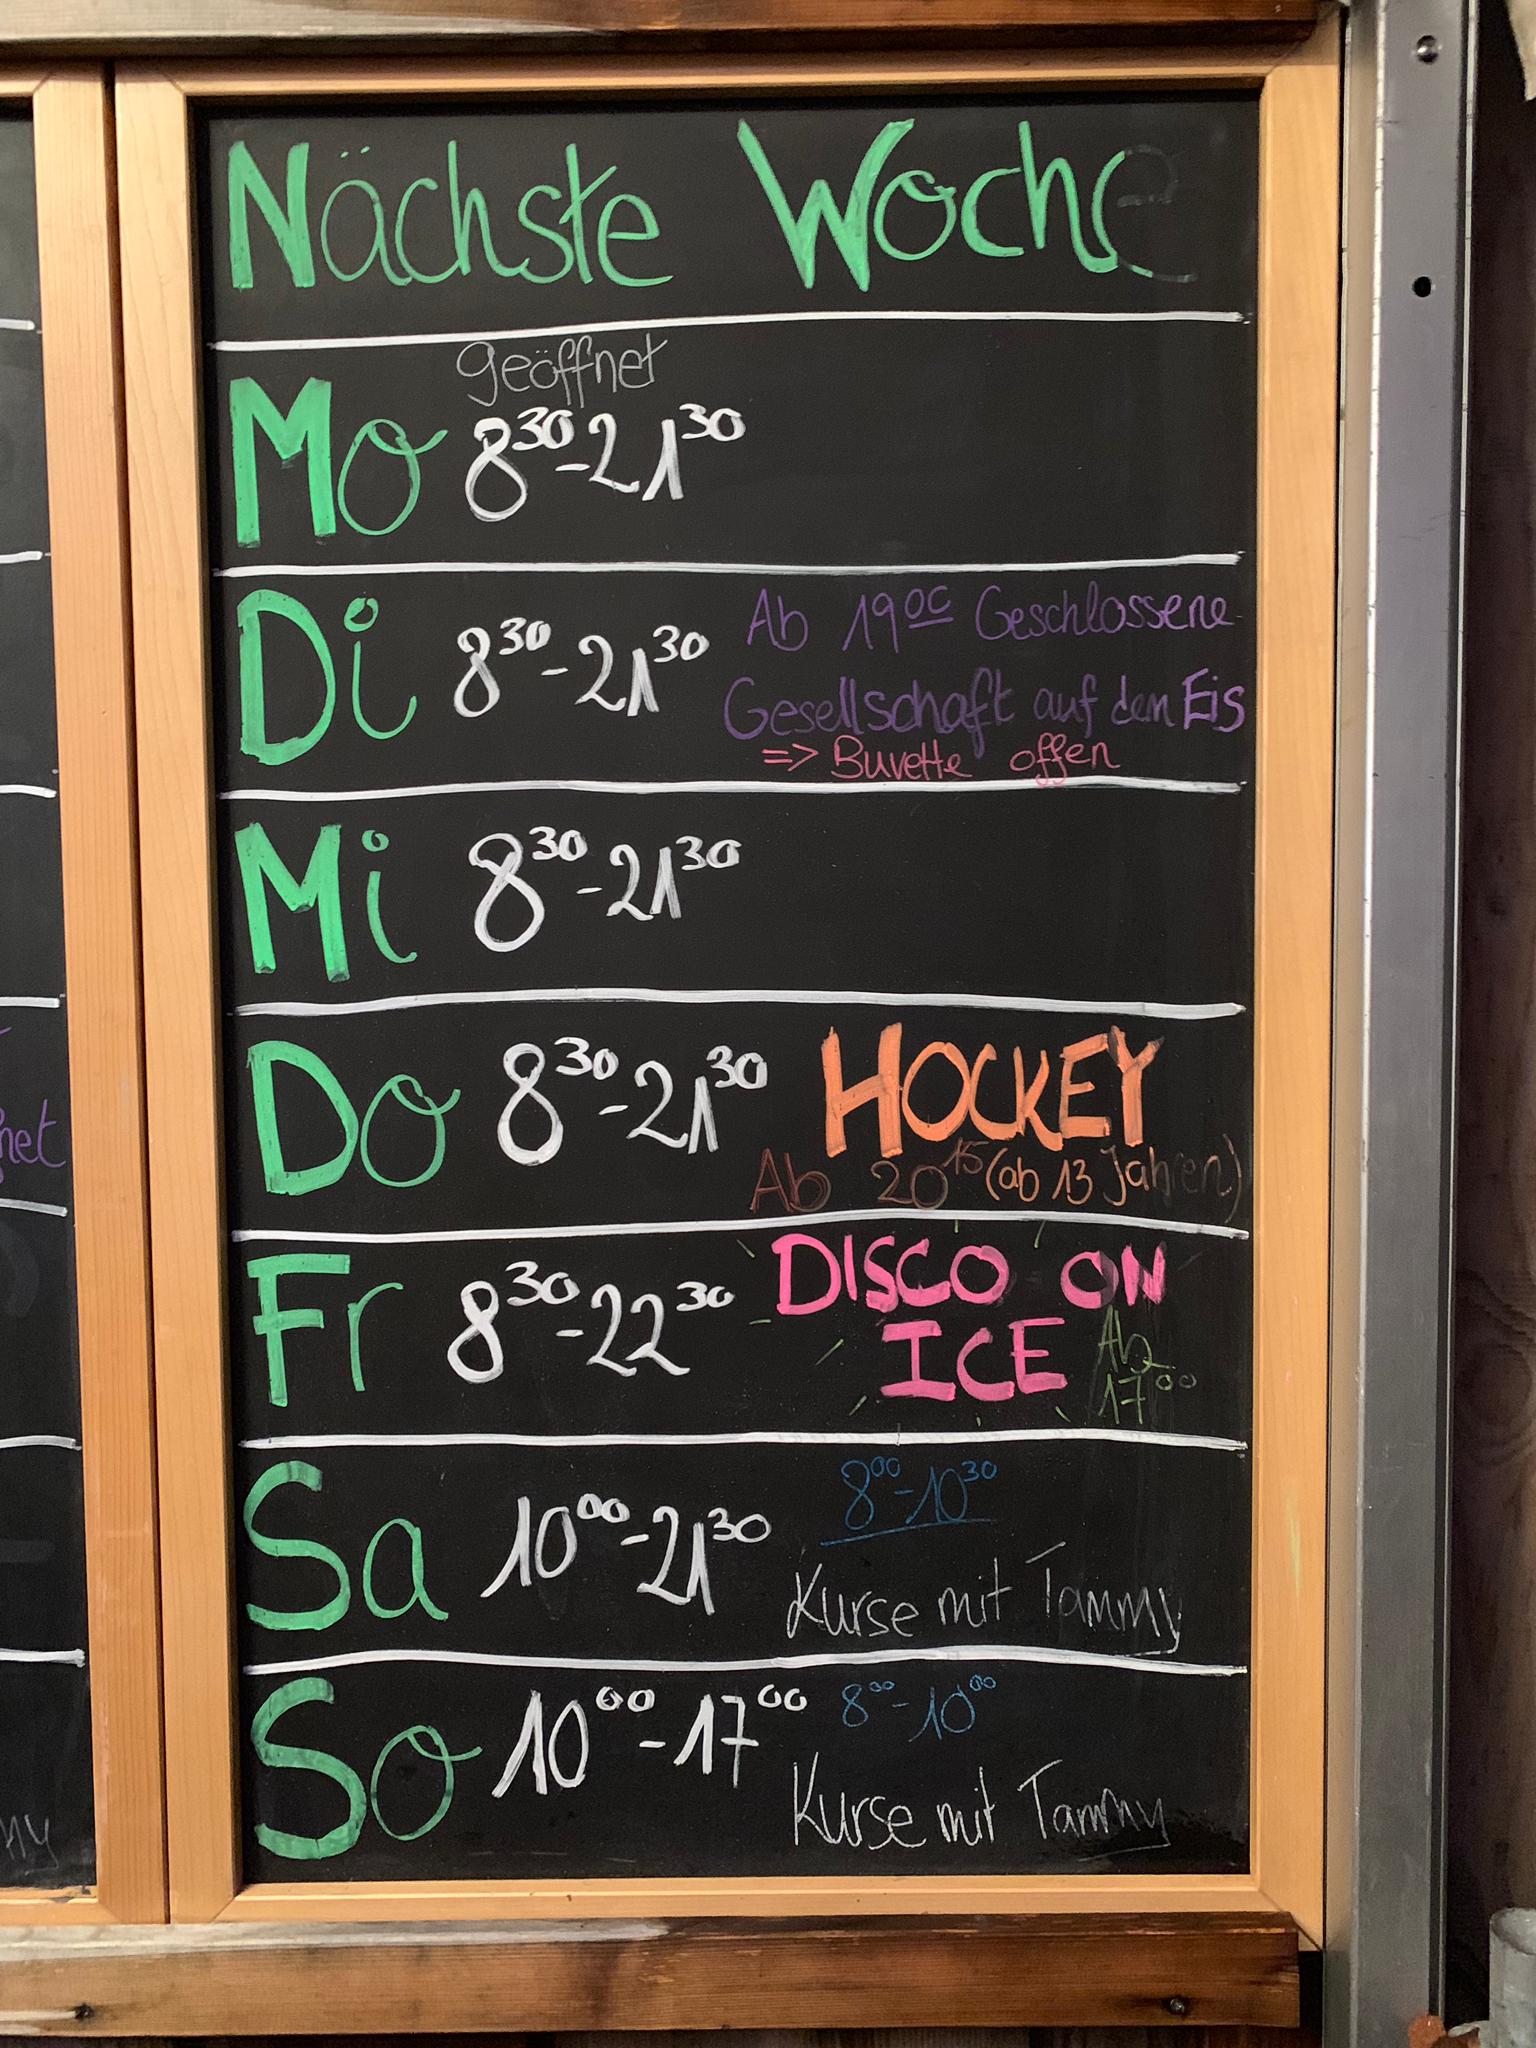 Nächste Woche
geöffnet
Mo 8³⁰-21³⁰
Di 8³⁰-21³⁰
Ab 19⁰⁰ Geschlossene
Gesellschaft auf dem Eis
=> Buvette offen
Mi 8³⁰-21³⁰
Do 8³⁰-21³⁰ HOCKEY
Ab 20¹⁵ (ab 13 Jahren)
Fr 8³⁰-22³⁰ DISCO ON
ICE Ab
17⁰⁰
Sa 10⁰⁰-21³⁰ 8⁰⁰-10³⁰
Kurse mit Tammy
So 10⁰⁰-17⁰⁰ 8⁰⁰-10⁰⁰
Kurse mit Tammy